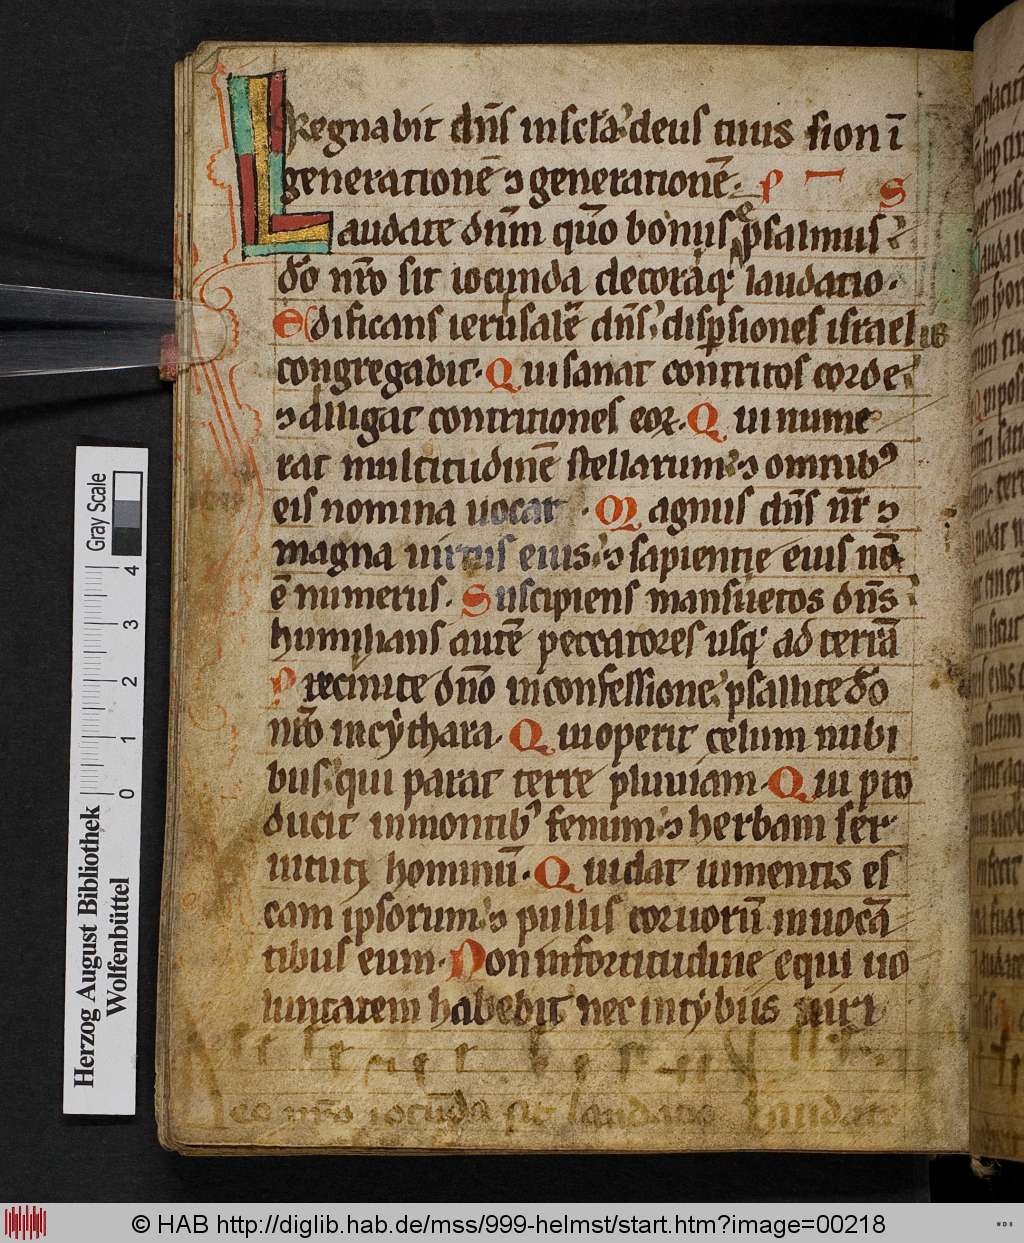 Regnabit dn̄s inscl̄a. deus tuus sion ī
generationē ⁊ generationē. P S
Laudate dn̄m qūo bonus psalmus
dō nr̄o sit iocunda decoraq; laudatio.
Edificans ierusalē dn̄s. dispsiones israel
congregabit. Qui sanat contritos corde
⁊ alligat contritiones eoꝝ. Qui nume
rat multitudinē stellarum. ⁊ omnibꝰ
eis nomina uocat. Magnus dn̄s nr̄ ⁊
magna uirtus eius. ⁊ sapientie eius nō
ē numerus. Suscipiens mansuetos dn̄s
humilians autē peccatores usq; ad terrā
Precinite dn̄o inconfessione. psallite dō
nr̄o incythara. Qui operit celum nubi
bus. qui parat terre pluuiam. Qui pro
ducit inmontibꝰ fenum. ⁊ herbam ser
uituti hominū. Qui dat iumentis es
cam ipsorum. ⁊ pullis coruorū inuocā
tibus eum. Non infortitudine equi uo
luntatem habebit nec intybiis uiri
Deo nr̄o iocūda sit laudatio Laudate
Gray Scale
0 1 2 3 4
Herzog August Bibliothek
Wolfenbüttel
© HAB http://diglib.hab.de/mss/999-helmst/start.htm?image=00218